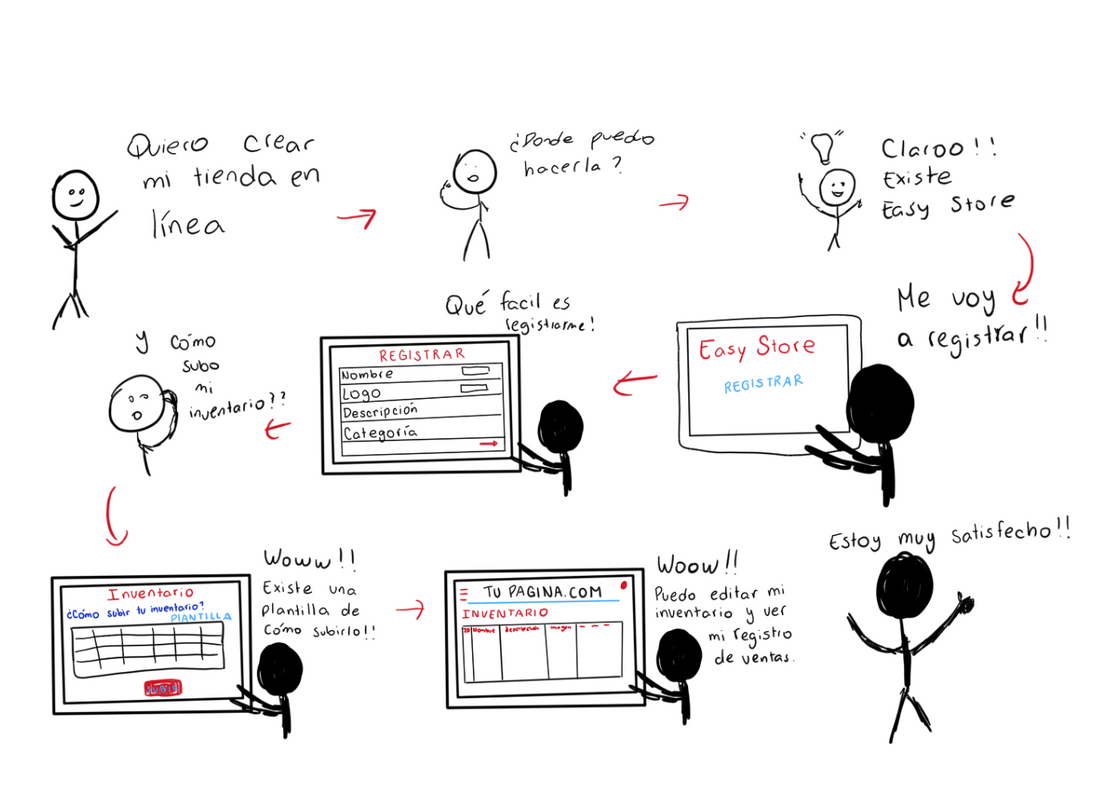 Quiero crear
mi tienda en
línea
¿Donde puedo
hacerla?
Claroo!!
Existe
Easy Store
Me voy
a registrar!!
Easy Store
REGISTRAR
Qué facil es
registrarme!
REGISTRAR
Nombre
Logo
Descripción
Categoría
y cómo
subo
mi
inventario??
Inventario
¿Cómo subir tu inventario?
PLANTILLA
Woww!!
Existe una
plantilla de
Cómo subirlo!!
TU PAGINA.COM
INVENTARIO
ID Nombre Descripción imagen
Woow!!
Puedo editar mi
inventario y ver
mi registro
de ventas.
Estoy muy satisfecho!!